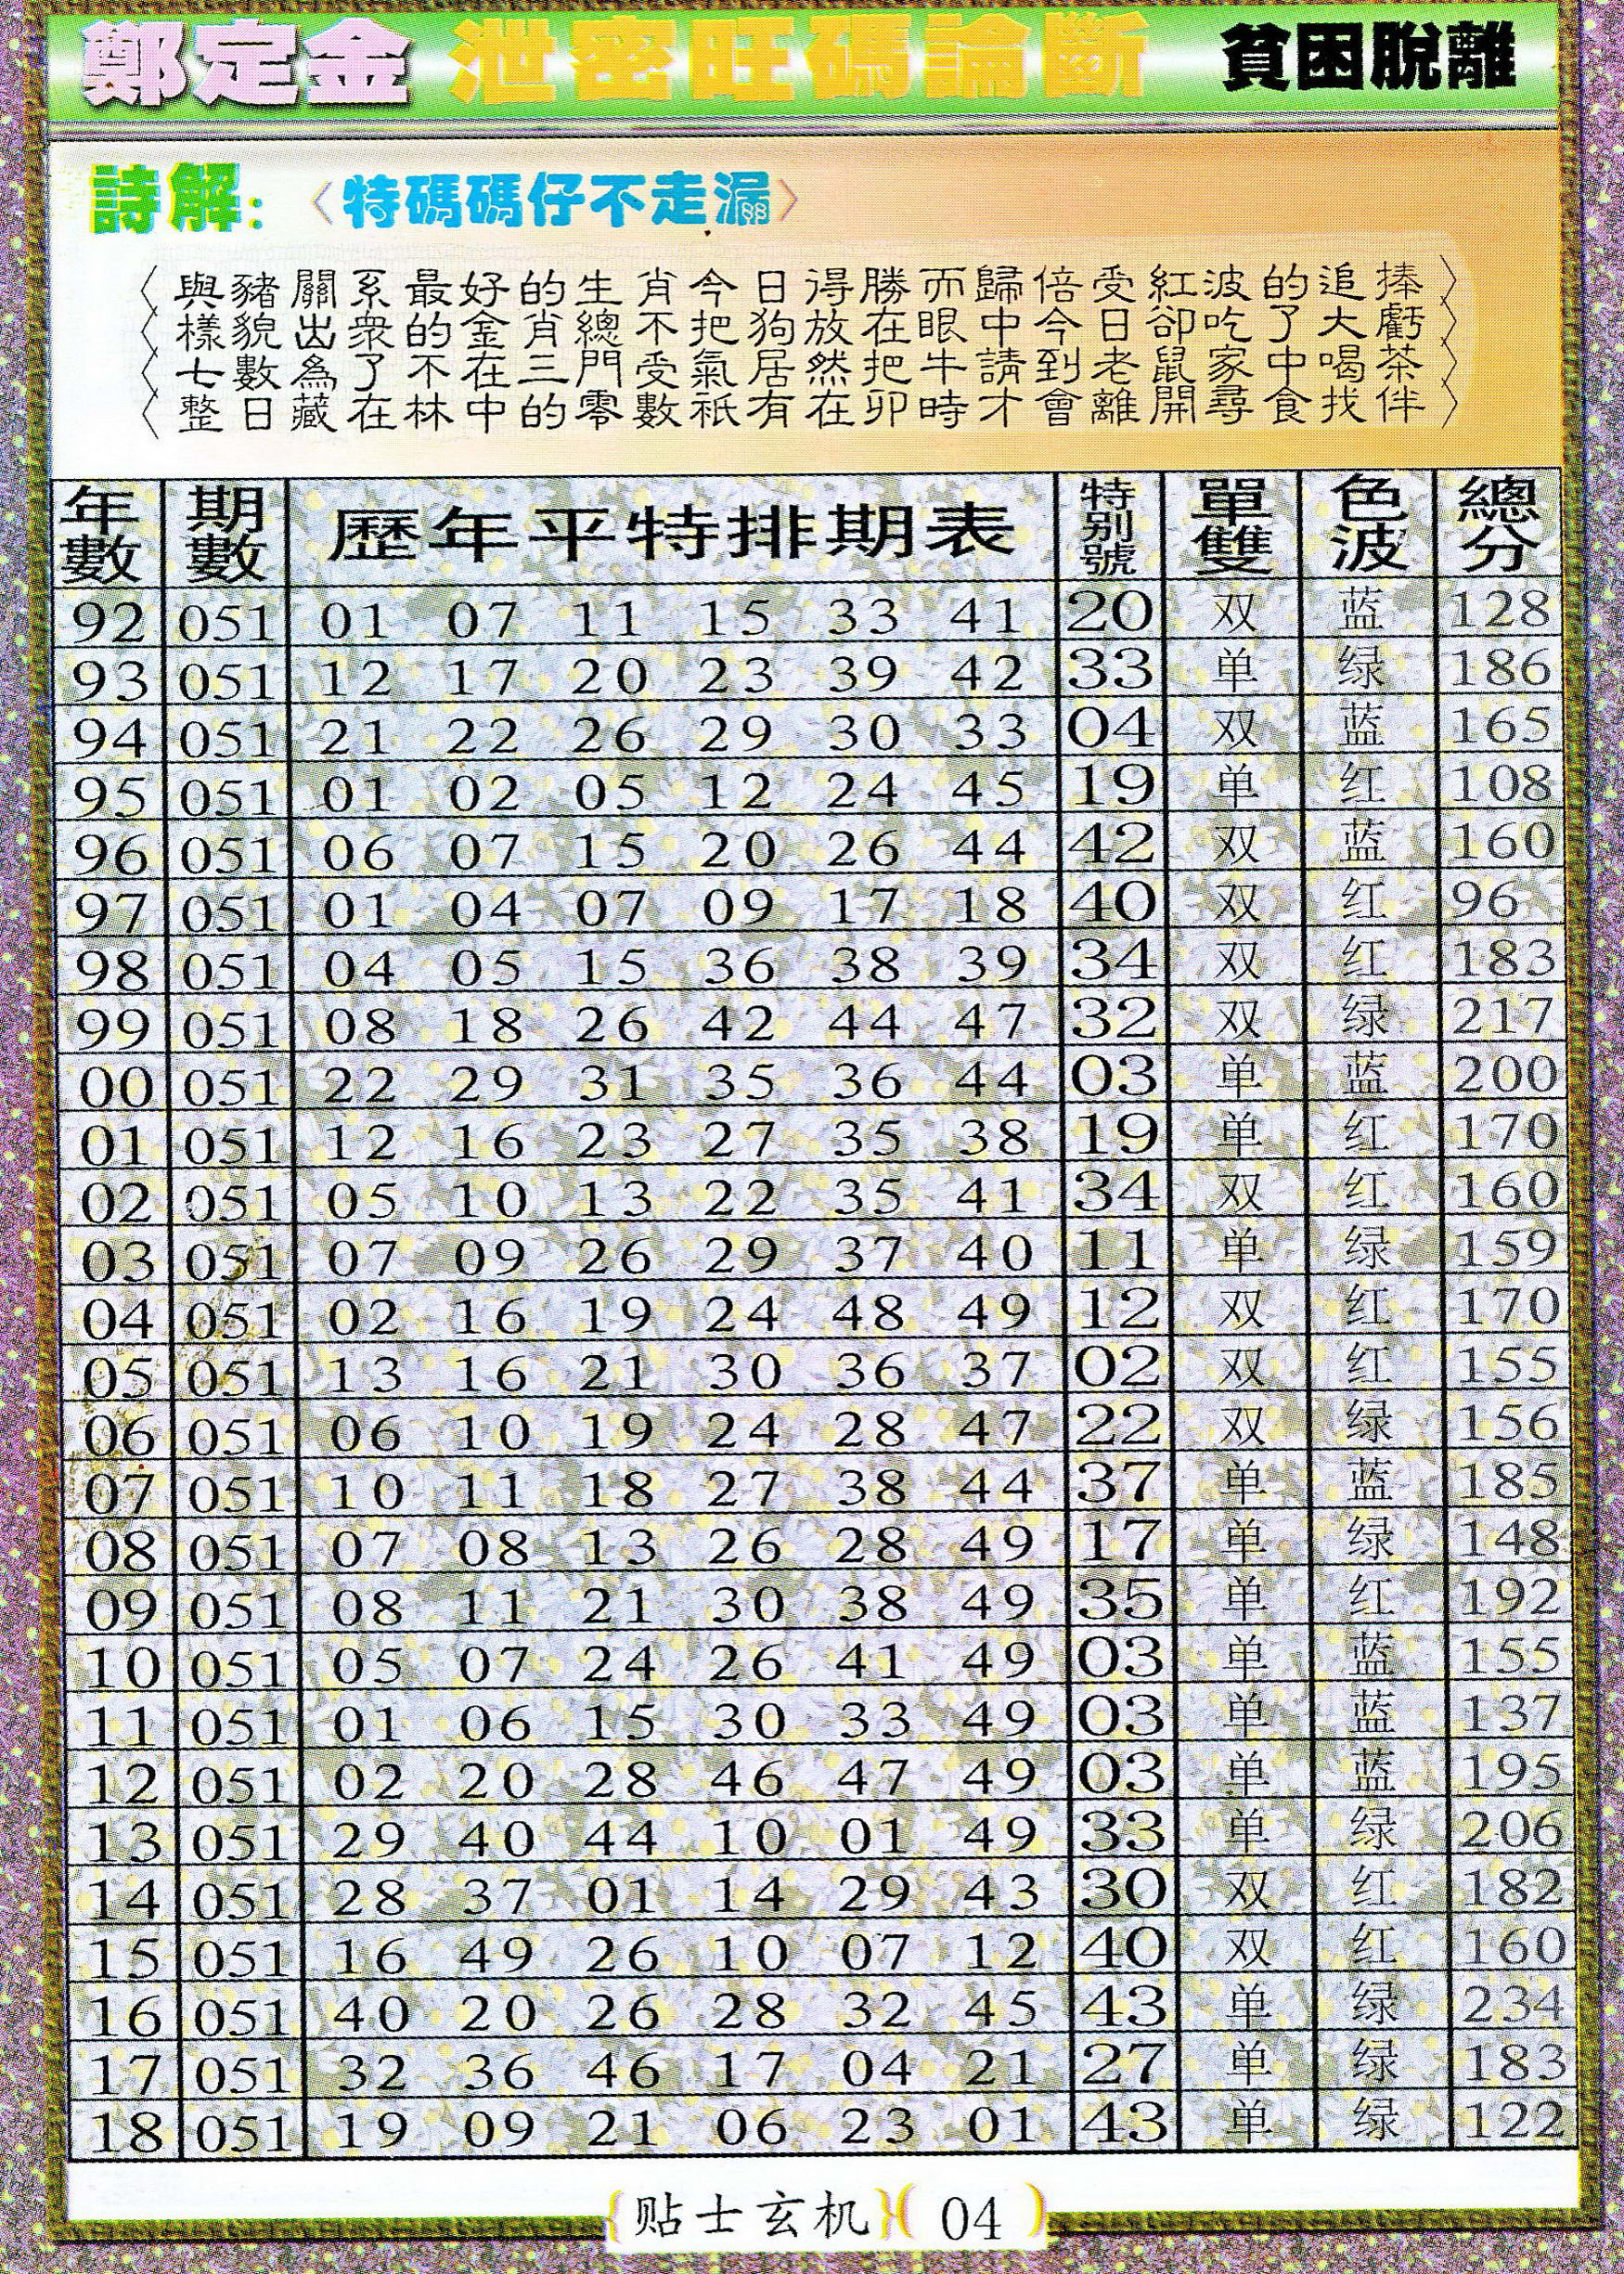 鄭定金 泄密旺碼論斷 貧困脫離
詩解: 〈特碼碼仔不走漏〉
〈與豬關系最好的生肖今日得勝而歸倍受紅波的追捧〉
〈樣貌出衆的金肖總不把狗放在眼中今日卻吃了大虧〉
〈七數為了不在三門受氣居然把牛請到老鼠家中喝茶〉
〈整日藏在林中的零數祇有在卯時才會離開尋食找伴〉
年數 期數 歷年平特排期表 特别號 單雙 色波 總分
92 051 01 07 11 15 33 41 20 双 蓝 128
93 051 12 17 20 23 39 42 33 单 绿 186
94 051 21 22 26 29 30 33 04 双 蓝 165
95 051 01 02 05 12 24 45 19 单 红 108
96 051 06 07 15 20 26 44 42 双 蓝 160
97 051 01 04 07 09 17 18 40 双 红 96
98 051 04 05 15 36 38 39 34 双 红 183
99 051 08 18 26 42 44 47 32 双 绿 217
00 051 22 29 31 35 36 44 03 单 蓝 200
01 051 12 16 23 27 35 38 19 单 红 170
02 051 05 10 13 22 35 41 34 双 红 160
03 051 07 09 26 29 37 40 11 单 绿 159
04 051 02 16 19 24 48 49 12 双 红 170
05 051 13 16 21 30 36 37 02 双 红 155
06 051 06 10 19 24 28 47 22 双 绿 156
07 051 10 11 18 27 38 44 37 单 蓝 185
08 051 07 08 13 26 28 49 17 单 绿 148
09 051 08 11 21 30 38 49 35 单 红 192
10 051 05 07 24 26 41 49 03 单 蓝 155
11 051 01 06 15 30 33 49 03 单 蓝 137
12 051 02 20 28 46 47 49 03 单 蓝 195
13 051 29 40 44 10 01 49 33 单 绿 206
14 051 28 37 01 14 29 43 30 双 红 182
15 051 16 49 26 10 07 12 40 双 红 160
16 051 40 20 26 28 32 45 43 单 绿 234
17 051 32 36 46 17 04 21 27 单 绿 183
18 051 19 09 21 06 23 01 43 单 绿 122
{贴士玄机}( 04 )